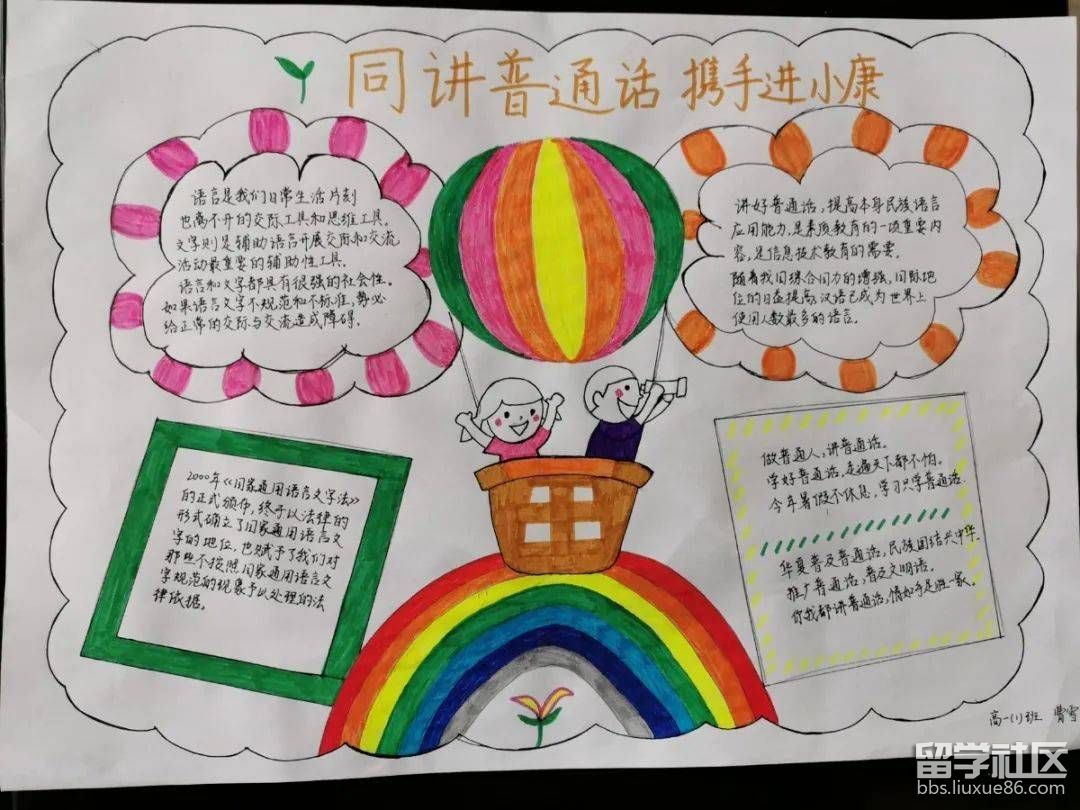 同讲普通话 携手进小康
语言是我们日常生活片刻
也离不开的交际工具和思维工具。
文字则是辅助语言开展交际和交流
活动最重要的辅助性工具。
语言和文字都具有很强的社会性。
如果语言文字不规范和不标准，势必
给正常的交际与交流造成障碍。
讲好普通话，提高本身民族语言
应用能力，是素质教育的一项重要内
容，是信息技术教育的需要。
随着我国综合国力的增强，国际地
位的日益提高，汉语已成为世界上
使用人数最多的语言。
2000年《国家通用语言文字法》
的正式颁布，终于以法律的
形式确立了国家通用语言文
字的地位，也赋予了我们对
那些不按照国家通用语言文
字规范的现象予以处理的法
律依据。
做普通人，讲普通话。
学好普通话，走遍天下都不怕。
今年暑假不休息，学习只学普通话.
华夏普及普通话，民族团结兴中华.
推广普通话，普及文明语。
你我都讲普通话，情如手足胜一家。
高一(1)班 曹雪
留学社区
bbs.liuxue86.com